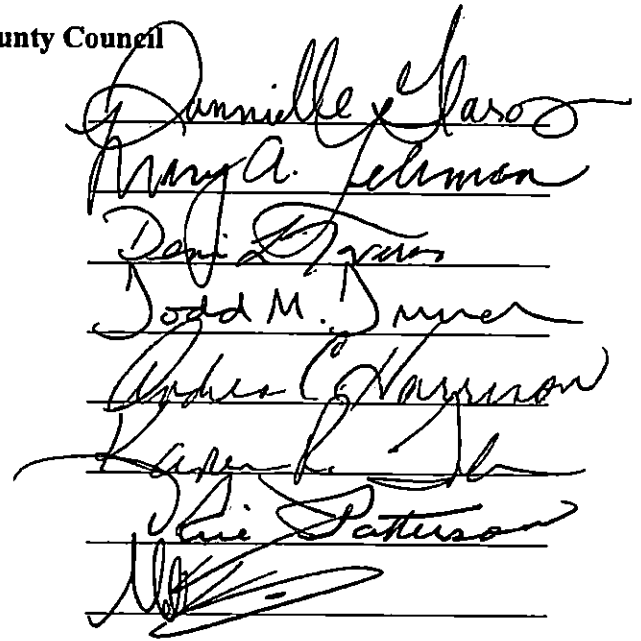 unty Council
Dannielle Glaros
Mary A. Lehman
Deni
Todd M. Turner
Andrea C. Harrison
Karen R.
Obie Patterson